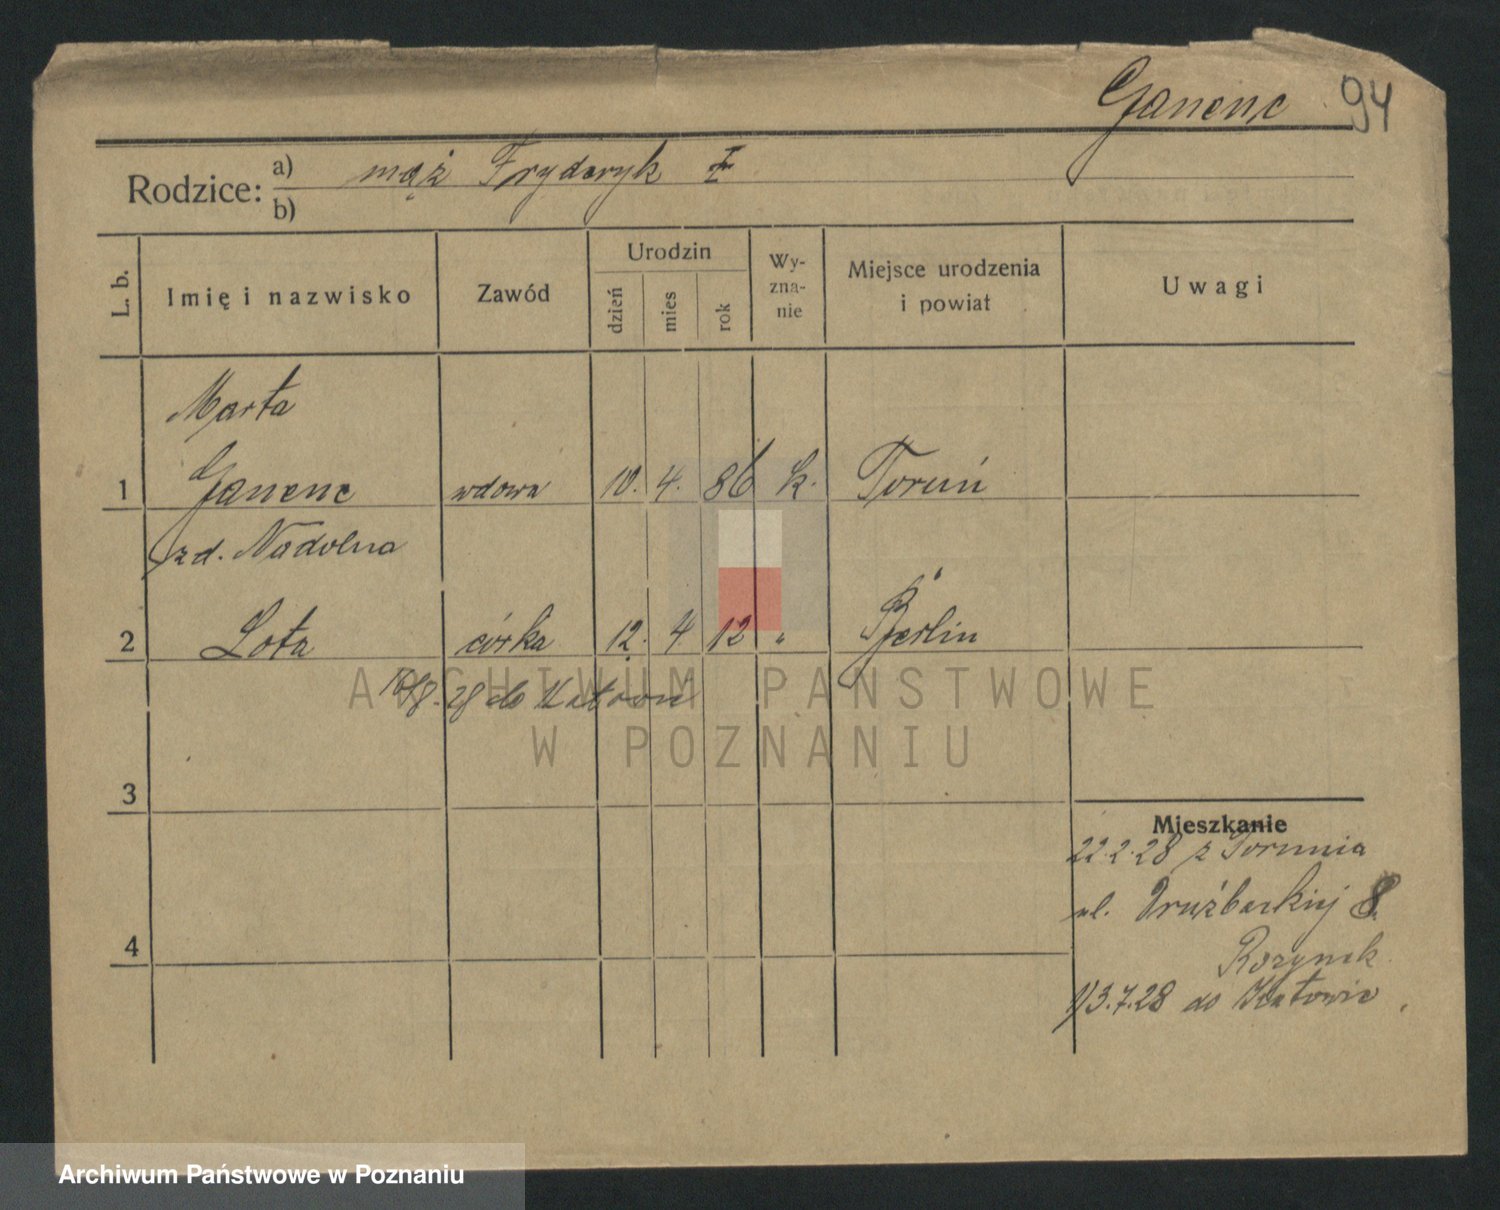 Ganenc 94
Rodzice: a) mąż Fryderyk
b)
L. b. Imię i nazwisko Zawód Urodzin dzień mies rok Wy-zna-nie Miejsce urodzenia i powiat Uwagi
Marta
1 Ganenc wdowa 10. 4. 86 k. Toruń
zd. Nadolna
2 Lota córka 12. 4 12 " Berlin
28 do Katowic
3
4
Mieszkanie
22.2.28 z Torunia
ul. Drużbackiej 8.
Rozynek
1) 3.7.28 do Katowic
ARCHIWUM PAŃSTWOWE
W POZNANIU
Archiwum Państwowe w Poznaniu